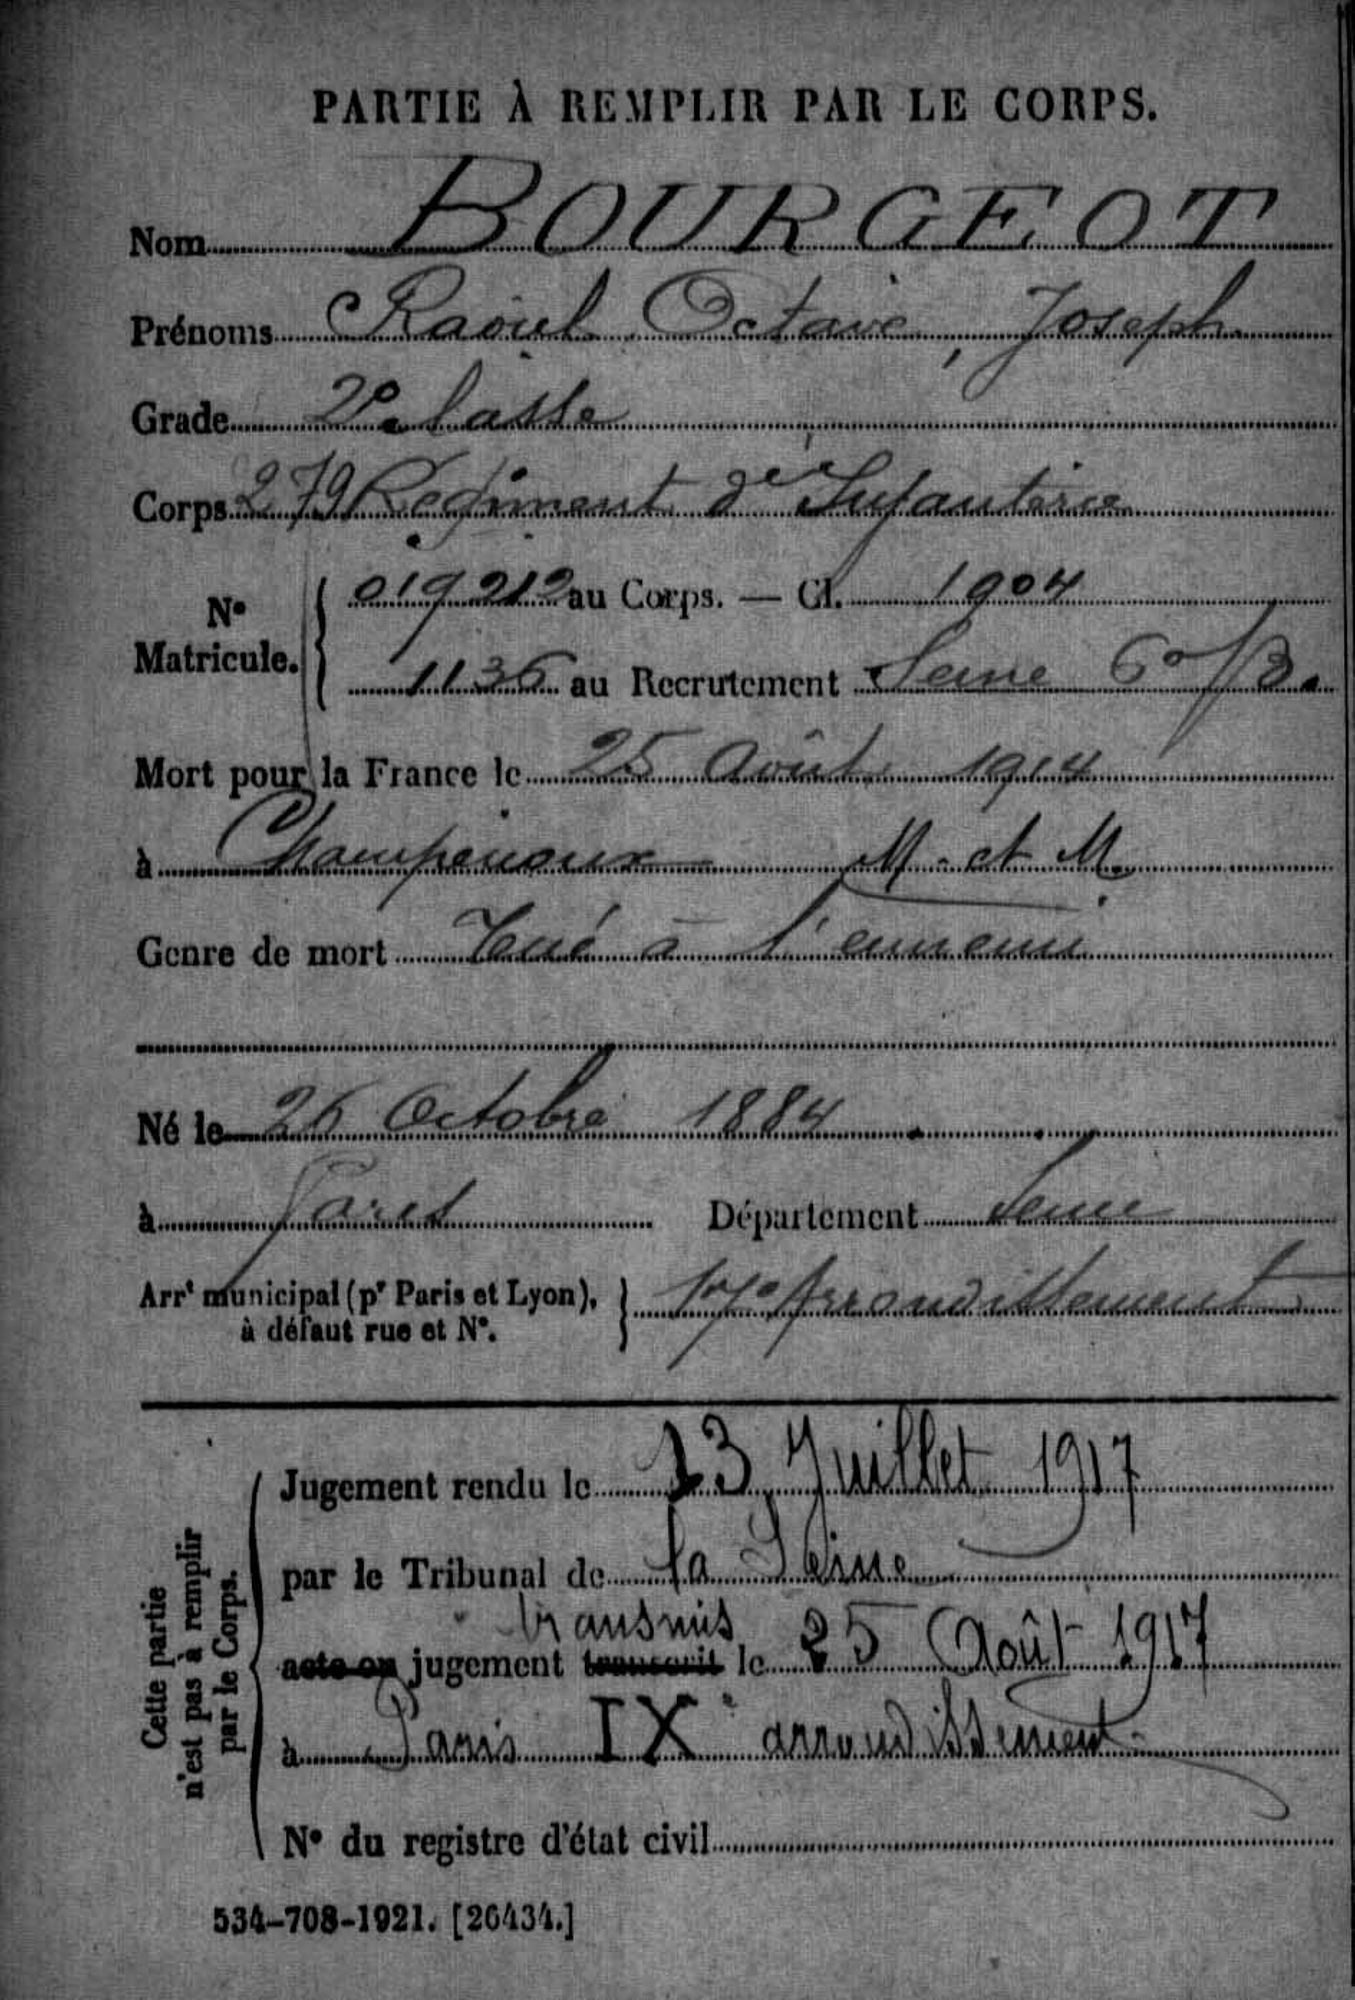 PARTIE À REMPLIR PAR LE CORPS.
Nom BOURGEOT
Prénoms Raoul Octave, Joseph
Grade 2e classe
Corps 279 Régiment d'Infanterie
No Matricule. 019212 au Corps. — Cl. 1904
1136 au Recrutement Seine 6e B.
Mort pour la France le 25 Août 1914
à Champenoux M. et M.
Genre de mort Tué à l'ennemi
Né le 26 Octobre 1884
à Paris Département Seine
Arrt municipal (pr Paris et Lyon), à défaut rue et No. Arrondissement
Cette partie n'est pas à remplir par le Corps.
Jugement rendu le 13 Juillet 1917
par le Tribunal de la Seine
transmis
acte ou jugement transcrit le 25 Août 1917
à Paris IXe arrondissement
No du registre d'état civil
534-708-1921. [26434.]